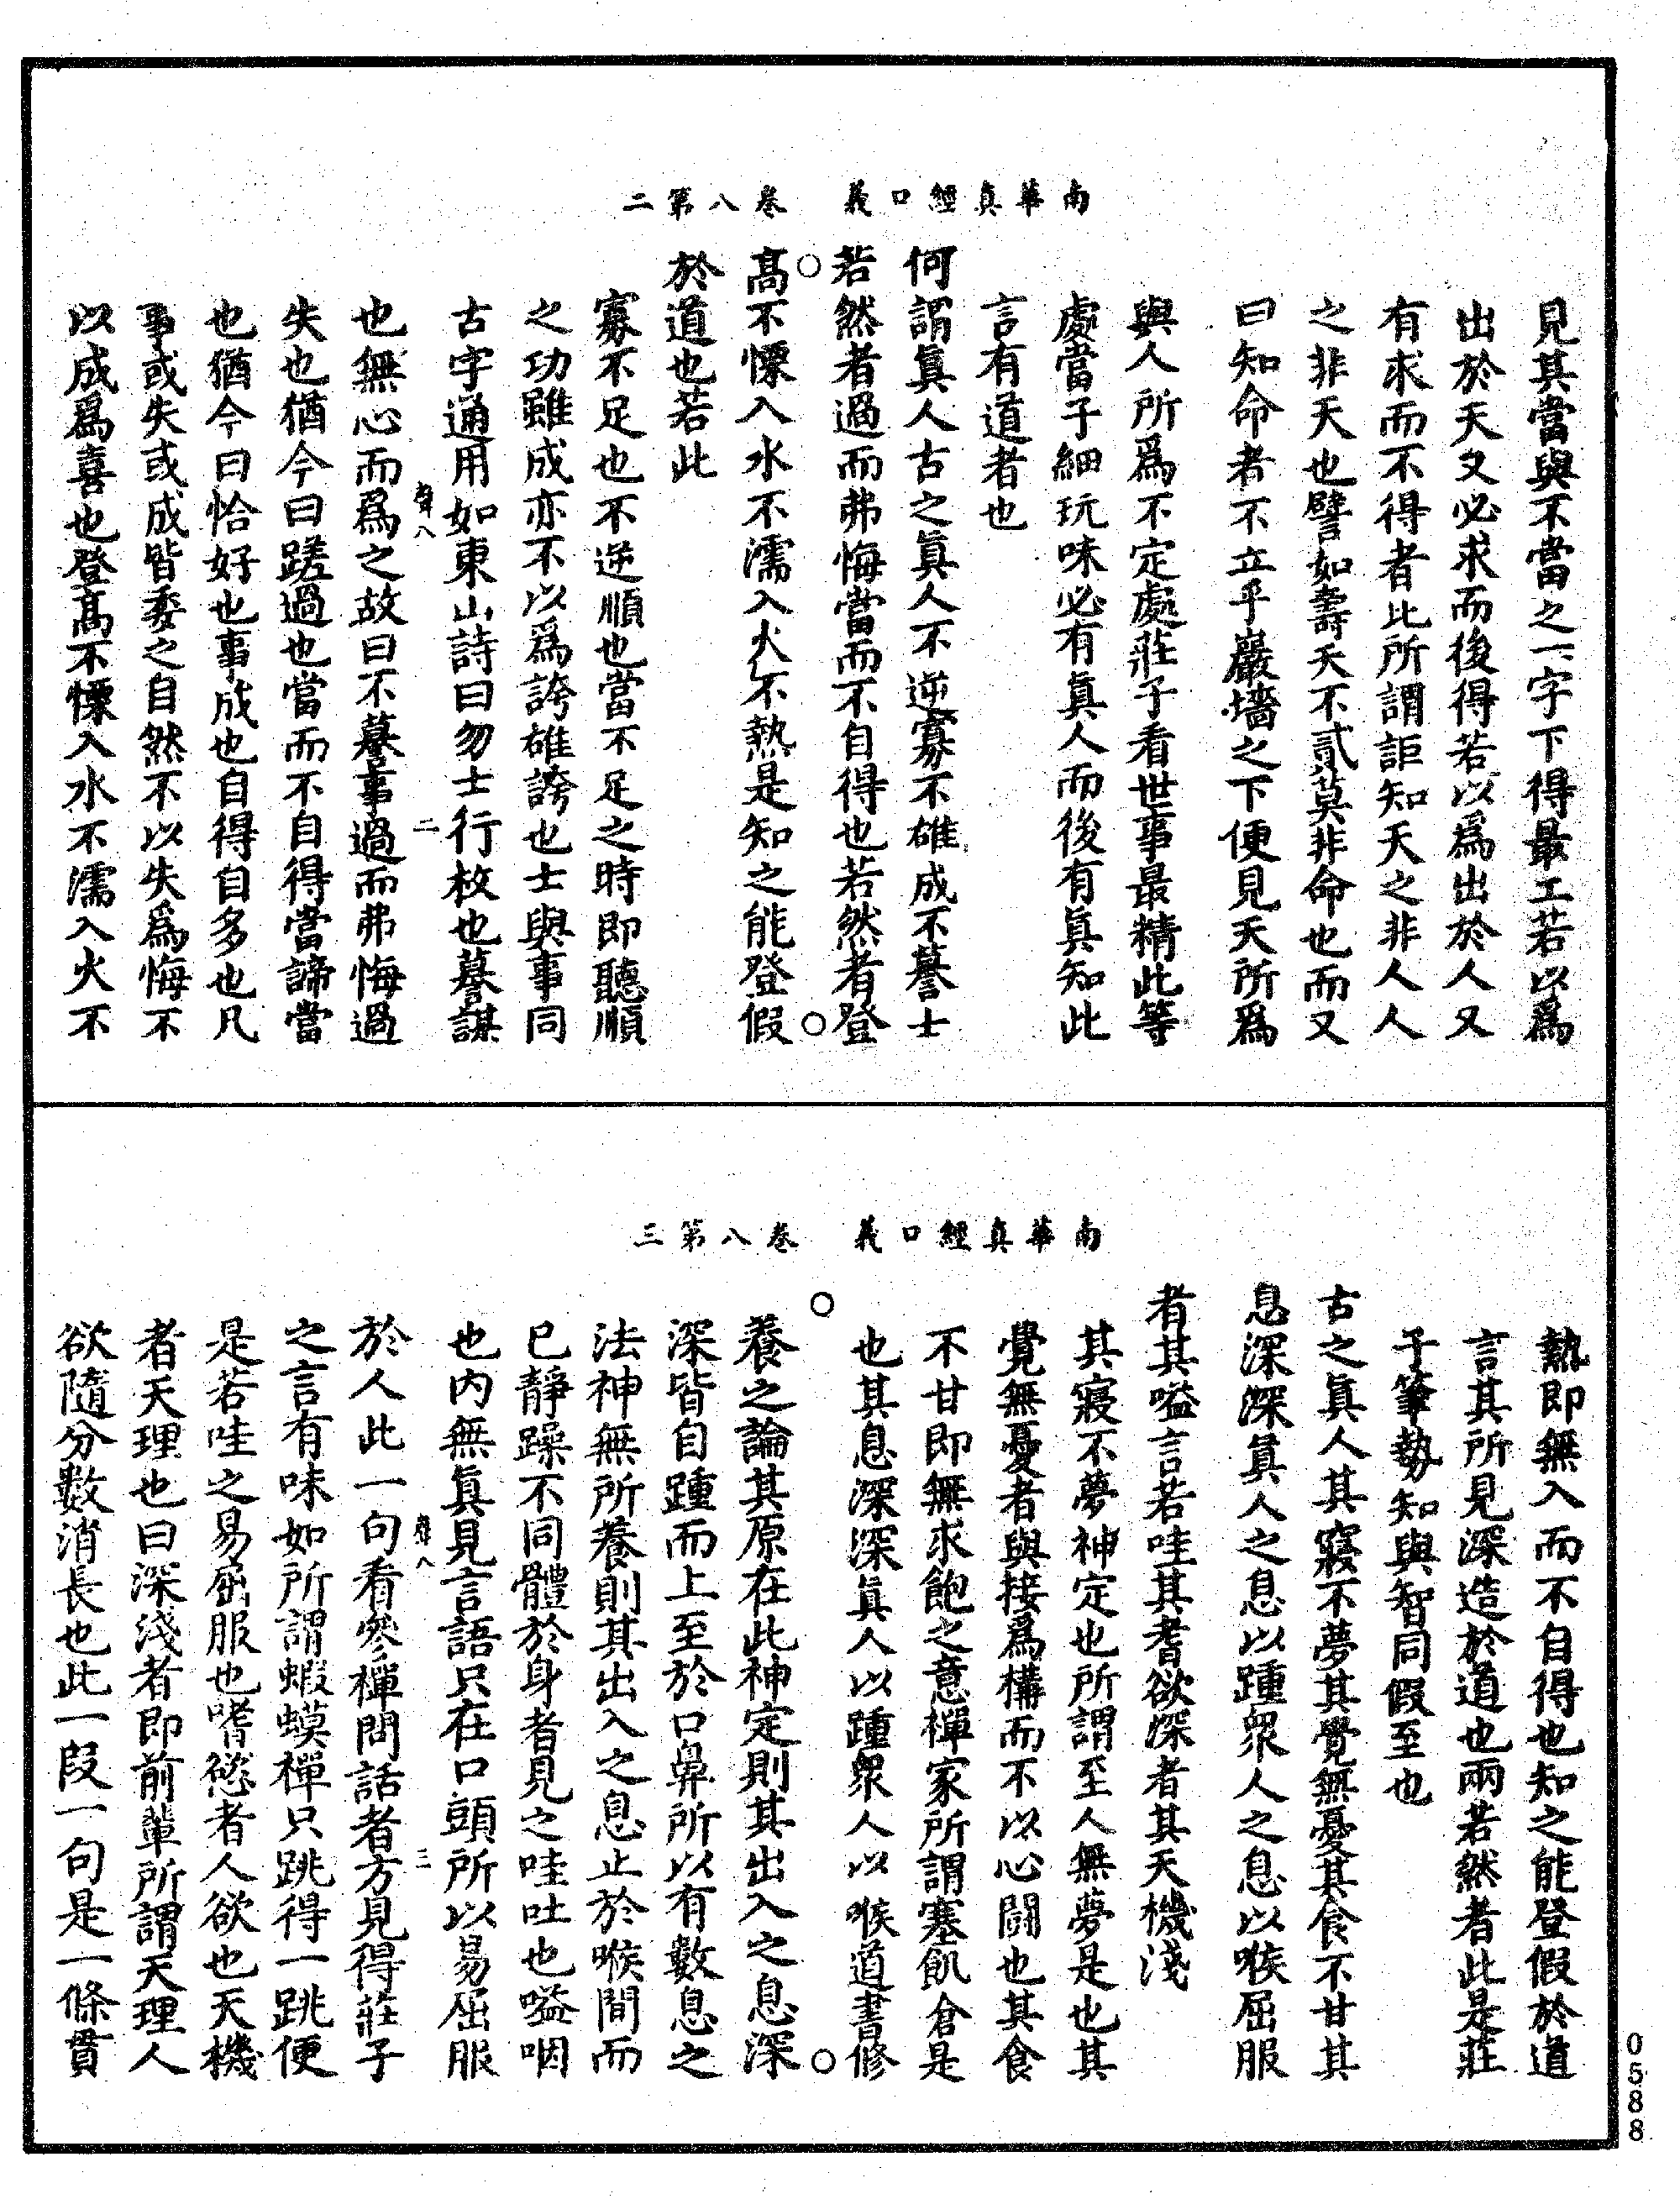 南華真經口義　卷八第二
見其當與不當之一字下得最工若以爲
出於天又必求而後得若以爲出於人又
有求而不得者比所謂詎知天之非人人
之非天也譬如壽夭不貳莫非命也而又
曰知命者不立乎巖墻之下便見天所爲
與人所爲不定處莊子看世事最精此等
處當子細玩味必有眞人而後有眞知此
言有道者也
何謂眞人古之眞人不逆寡不雄成不謩士
若然者過而弗悔當而不自得也若然者登
高不慄入水不濡入火不熱是知之能登假
於道也若此
寡不足也不逆順也當不足之時即聽順
之功雖成亦不以爲誇雄誇也士與事同
古字通用如東山詩曰勿士行枚也謩謀
也無心而爲之故曰不謩事過而弗悔過
失也猶今曰蹉過也當而不自得當諦當
也猶今曰恰好也事成也自得自多也凡
事或失或成皆委之自然不以失爲悔不
以成爲喜也登高不慄入水不濡入火不
南華真經口義　卷八第三
熱即無入而不自得也知之能登假於道
言其所見深造於道也兩若然者此是莊
子筆勢知與智同假至也
古之眞人其寢不夢其覺無憂其食不甘其
息深深眞人之息以踵衆人之息以喉屈服
者其嗌言若哇其耆欲深者其天機淺
其寢不夢神定也所謂至人無夢是也其
覺無憂者與接爲構而不以心鬪也其食
不甘即無求飽之意禪家所謂塞飢倉是
也其息深深眞人以踵衆人以喉道書修
養之論其原在此神定則其出入之息深
深皆自踵而上至於口鼻所以有數息之
法神無所養則其出入之息止於喉間而
已靜躁不同體於身者見之哇吐也嗌咽
也内無眞見言語只在口頭所以易屈服
於人此一句看參禪問話者方見得莊子
之言有味如所謂蝦蟆禪只跳得一跳便
是若哇之易屈服也嗜慾者人欲也天機
者天理也曰深淺者即前輩所謂天理人
欲隨分數消長也此一段一句是一條貫
0588